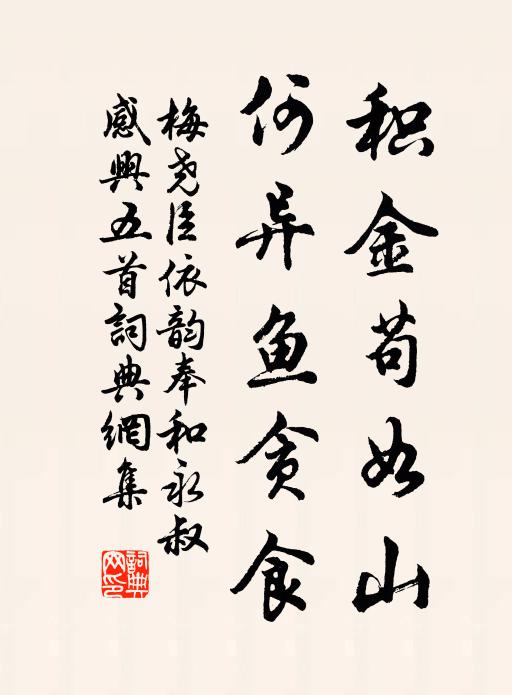 积金苟如山
何异鱼贪食
梅尧臣依韵奉和永叔
感興五首詞典網集
詞典
网印